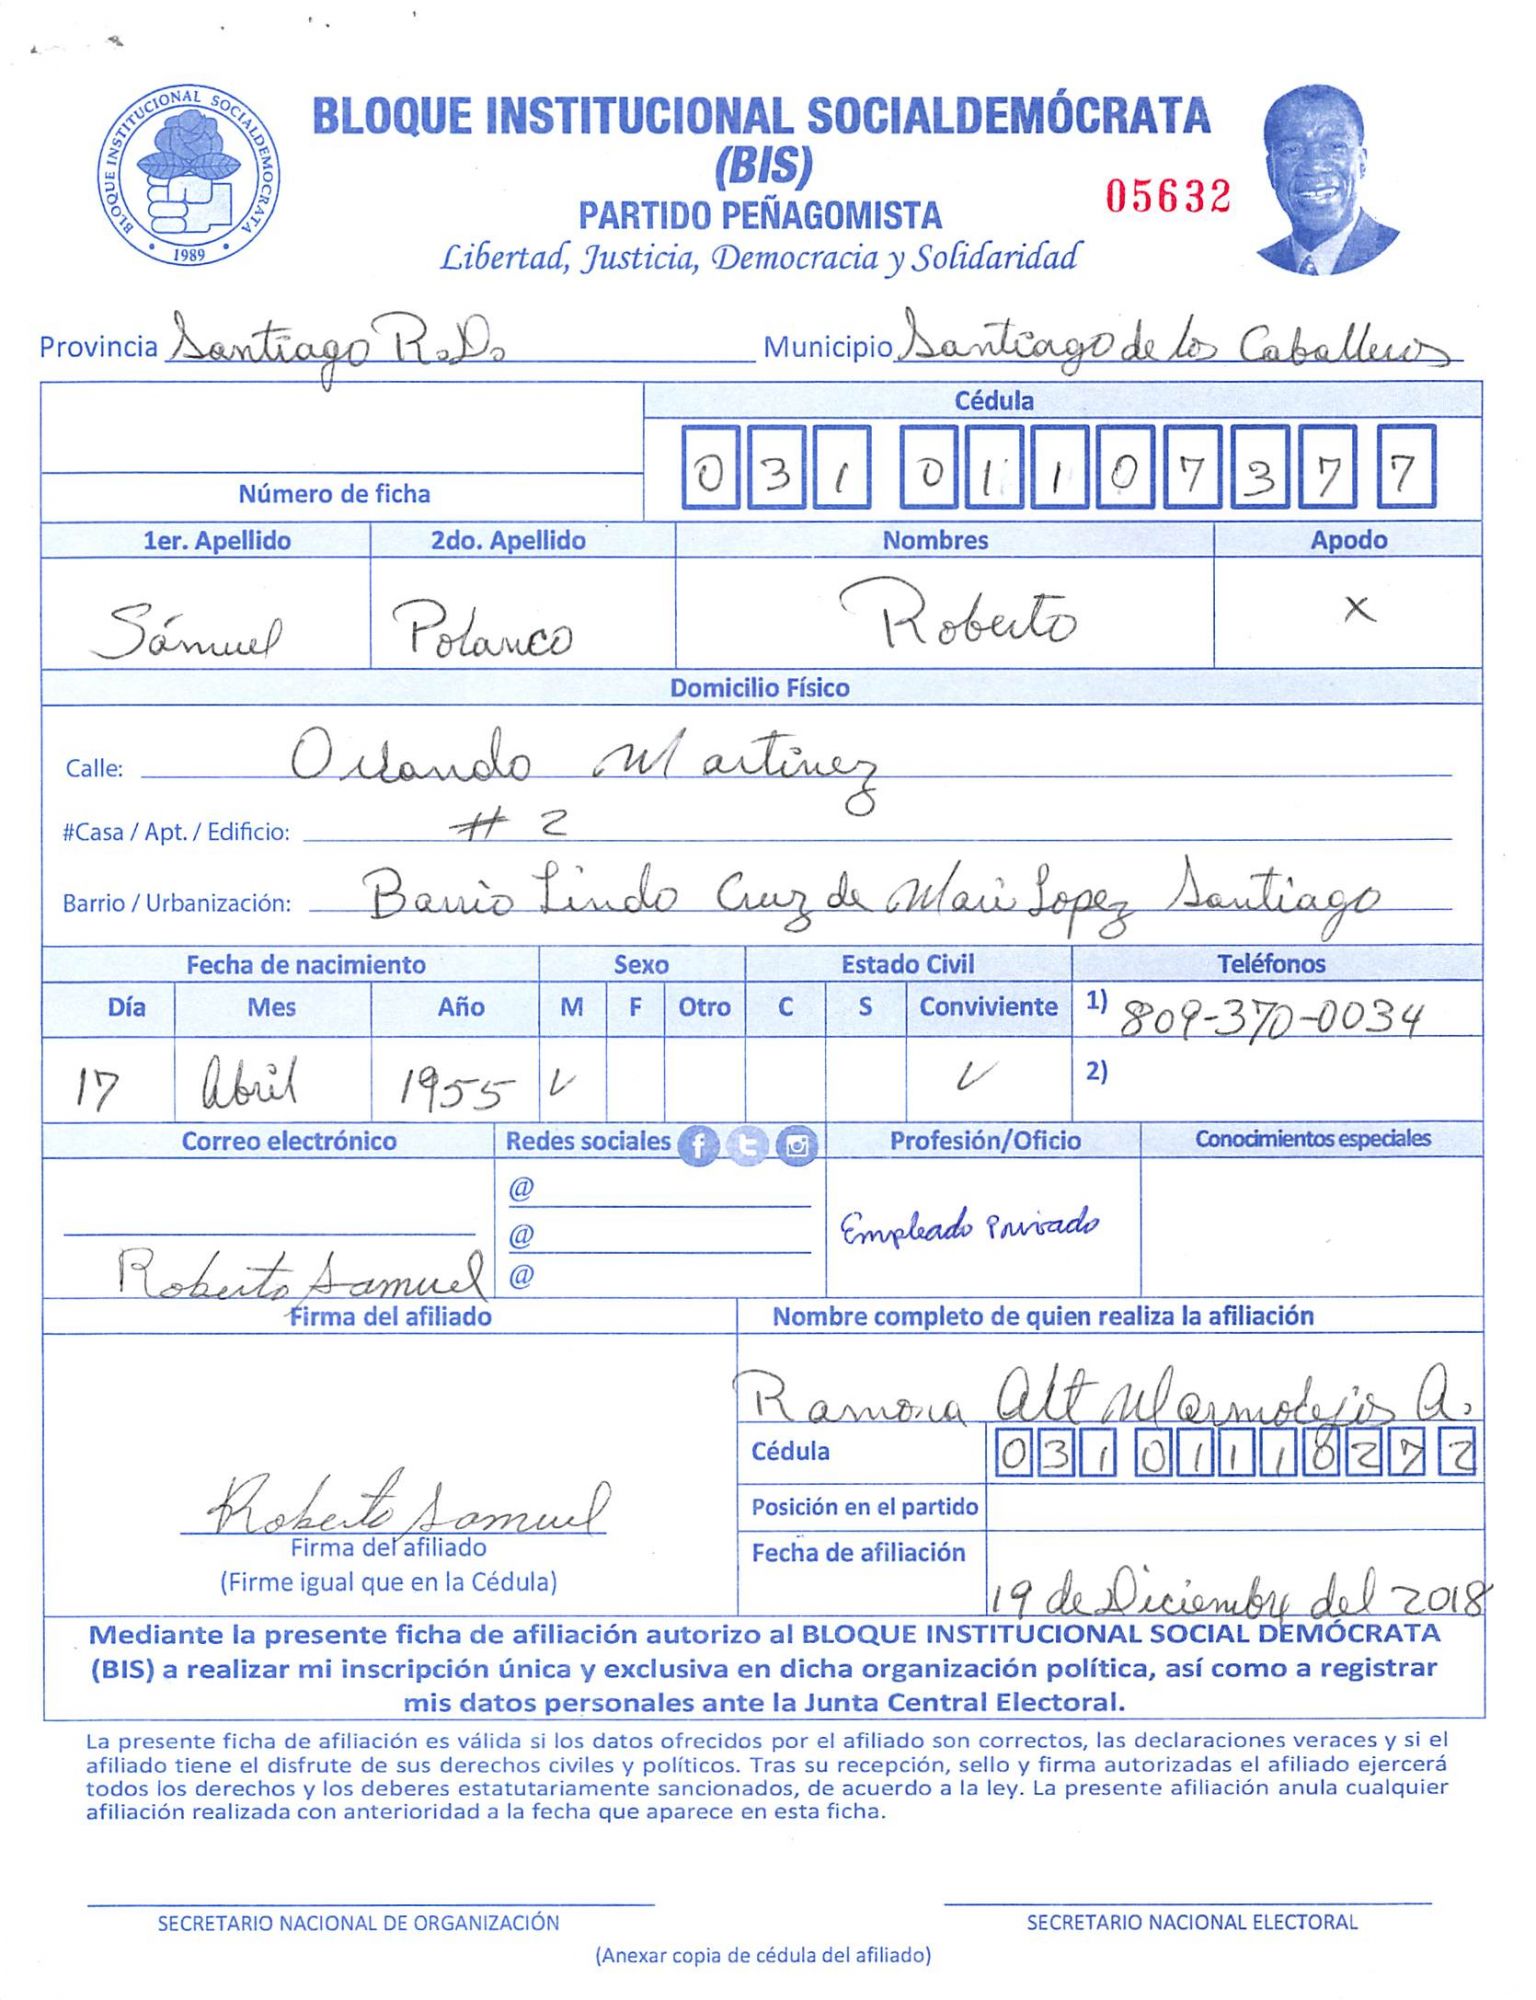 BLOQUE INSTITUCIONAL SOCIALDEMOCRATA
1989
BLOQUE INSTITUCIONAL SOCIALDEMÓCRATA
(BIS)
PARTIDO PEÑAGOMISTA
05632
Libertad, Justicia, Democracia y Solidaridad
Provincia Santiago R.D. Municipio Santiago de los Caballeros
Cédula
0 3 1 0 1 1 0 7 3 7 7
Número de ficha
1er. Apellido 2do. Apellido Nombres Apodo
Sámuel Polanco Roberto X
Domicilio Físico
Calle: Orlando Martinez
#Casa / Apt. / Edificio: # 2
Barrio / Urbanización: Barrio Lindo Cruz de Mari Lopez Santiago
Fecha de nacimiento Sexo Estado Civil Teléfonos
Día Mes Año M F Otro C S Conviviente 1) 809-370-0034
17 Abril 1955 ✓ ✓ 2)
Correo electrónico Redes sociales Profesión/Oficio Conocimientos especiales
@
@
@
Empleado Privado
Roberto Samuel
Firma del afiliado Nombre completo de quien realiza la afiliación
Ramona Alt Marmolejos A.
Cédula 0 3 1 0 1 1 1 8 2 7 2
Posición en el partido
Roberto Samuel
Firma del afiliado
(Firme igual que en la Cédula)
Fecha de afiliación
19 de Diciembre del 2018
Mediante la presente ficha de afiliación autorizo al BLOQUE INSTITUCIONAL SOCIAL DEMÓCRATA
(BIS) a realizar mi inscripción única y exclusiva en dicha organización política, así como a registrar
mis datos personales ante la Junta Central Electoral.
La presente ficha de afiliación es válida si los datos ofrecidos por el afiliado son correctos, las declaraciones veraces y si el
afiliado tiene el disfrute de sus derechos civiles y políticos. Tras su recepción, sello y firma autorizadas el afiliado ejercerá
todos los derechos y los deberes estatutariamente sancionados, de acuerdo a la ley. La presente afiliación anula cualquier
afiliación realizada con anterioridad a la fecha que aparece en esta ficha.
SECRETARIO NACIONAL DE ORGANIZACIÓN SECRETARIO NACIONAL ELECTORAL
(Anexar copia de cédula del afiliado)